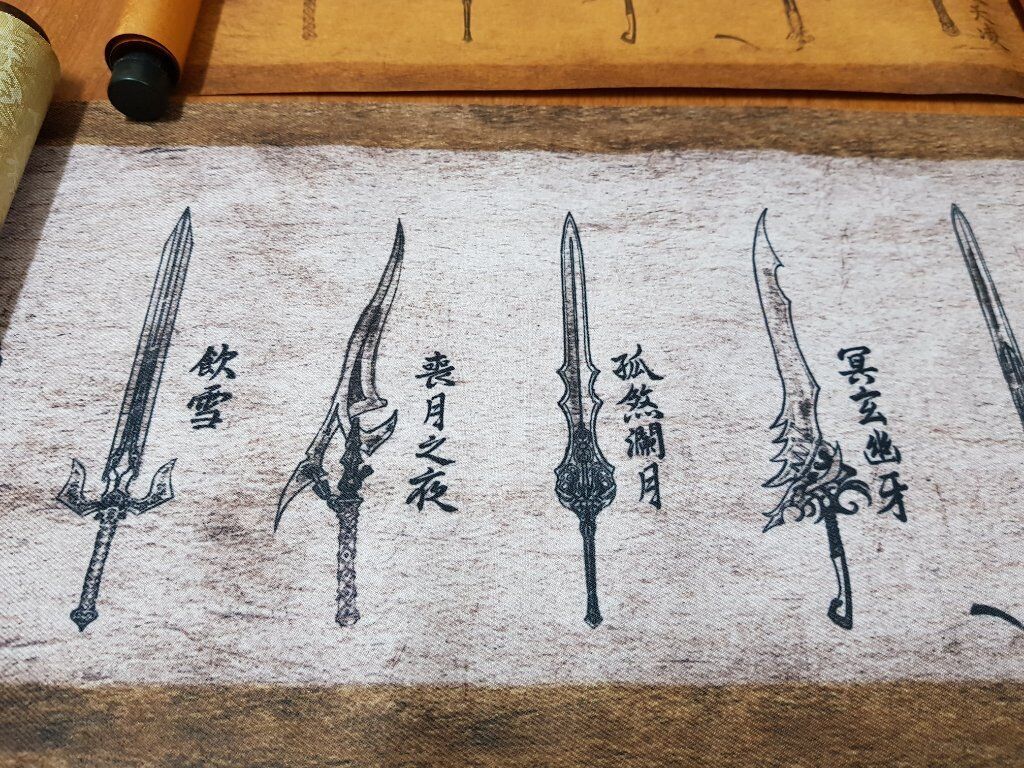 飲雪
喪月之夜
孤煞瀾月
冥玄幽牙